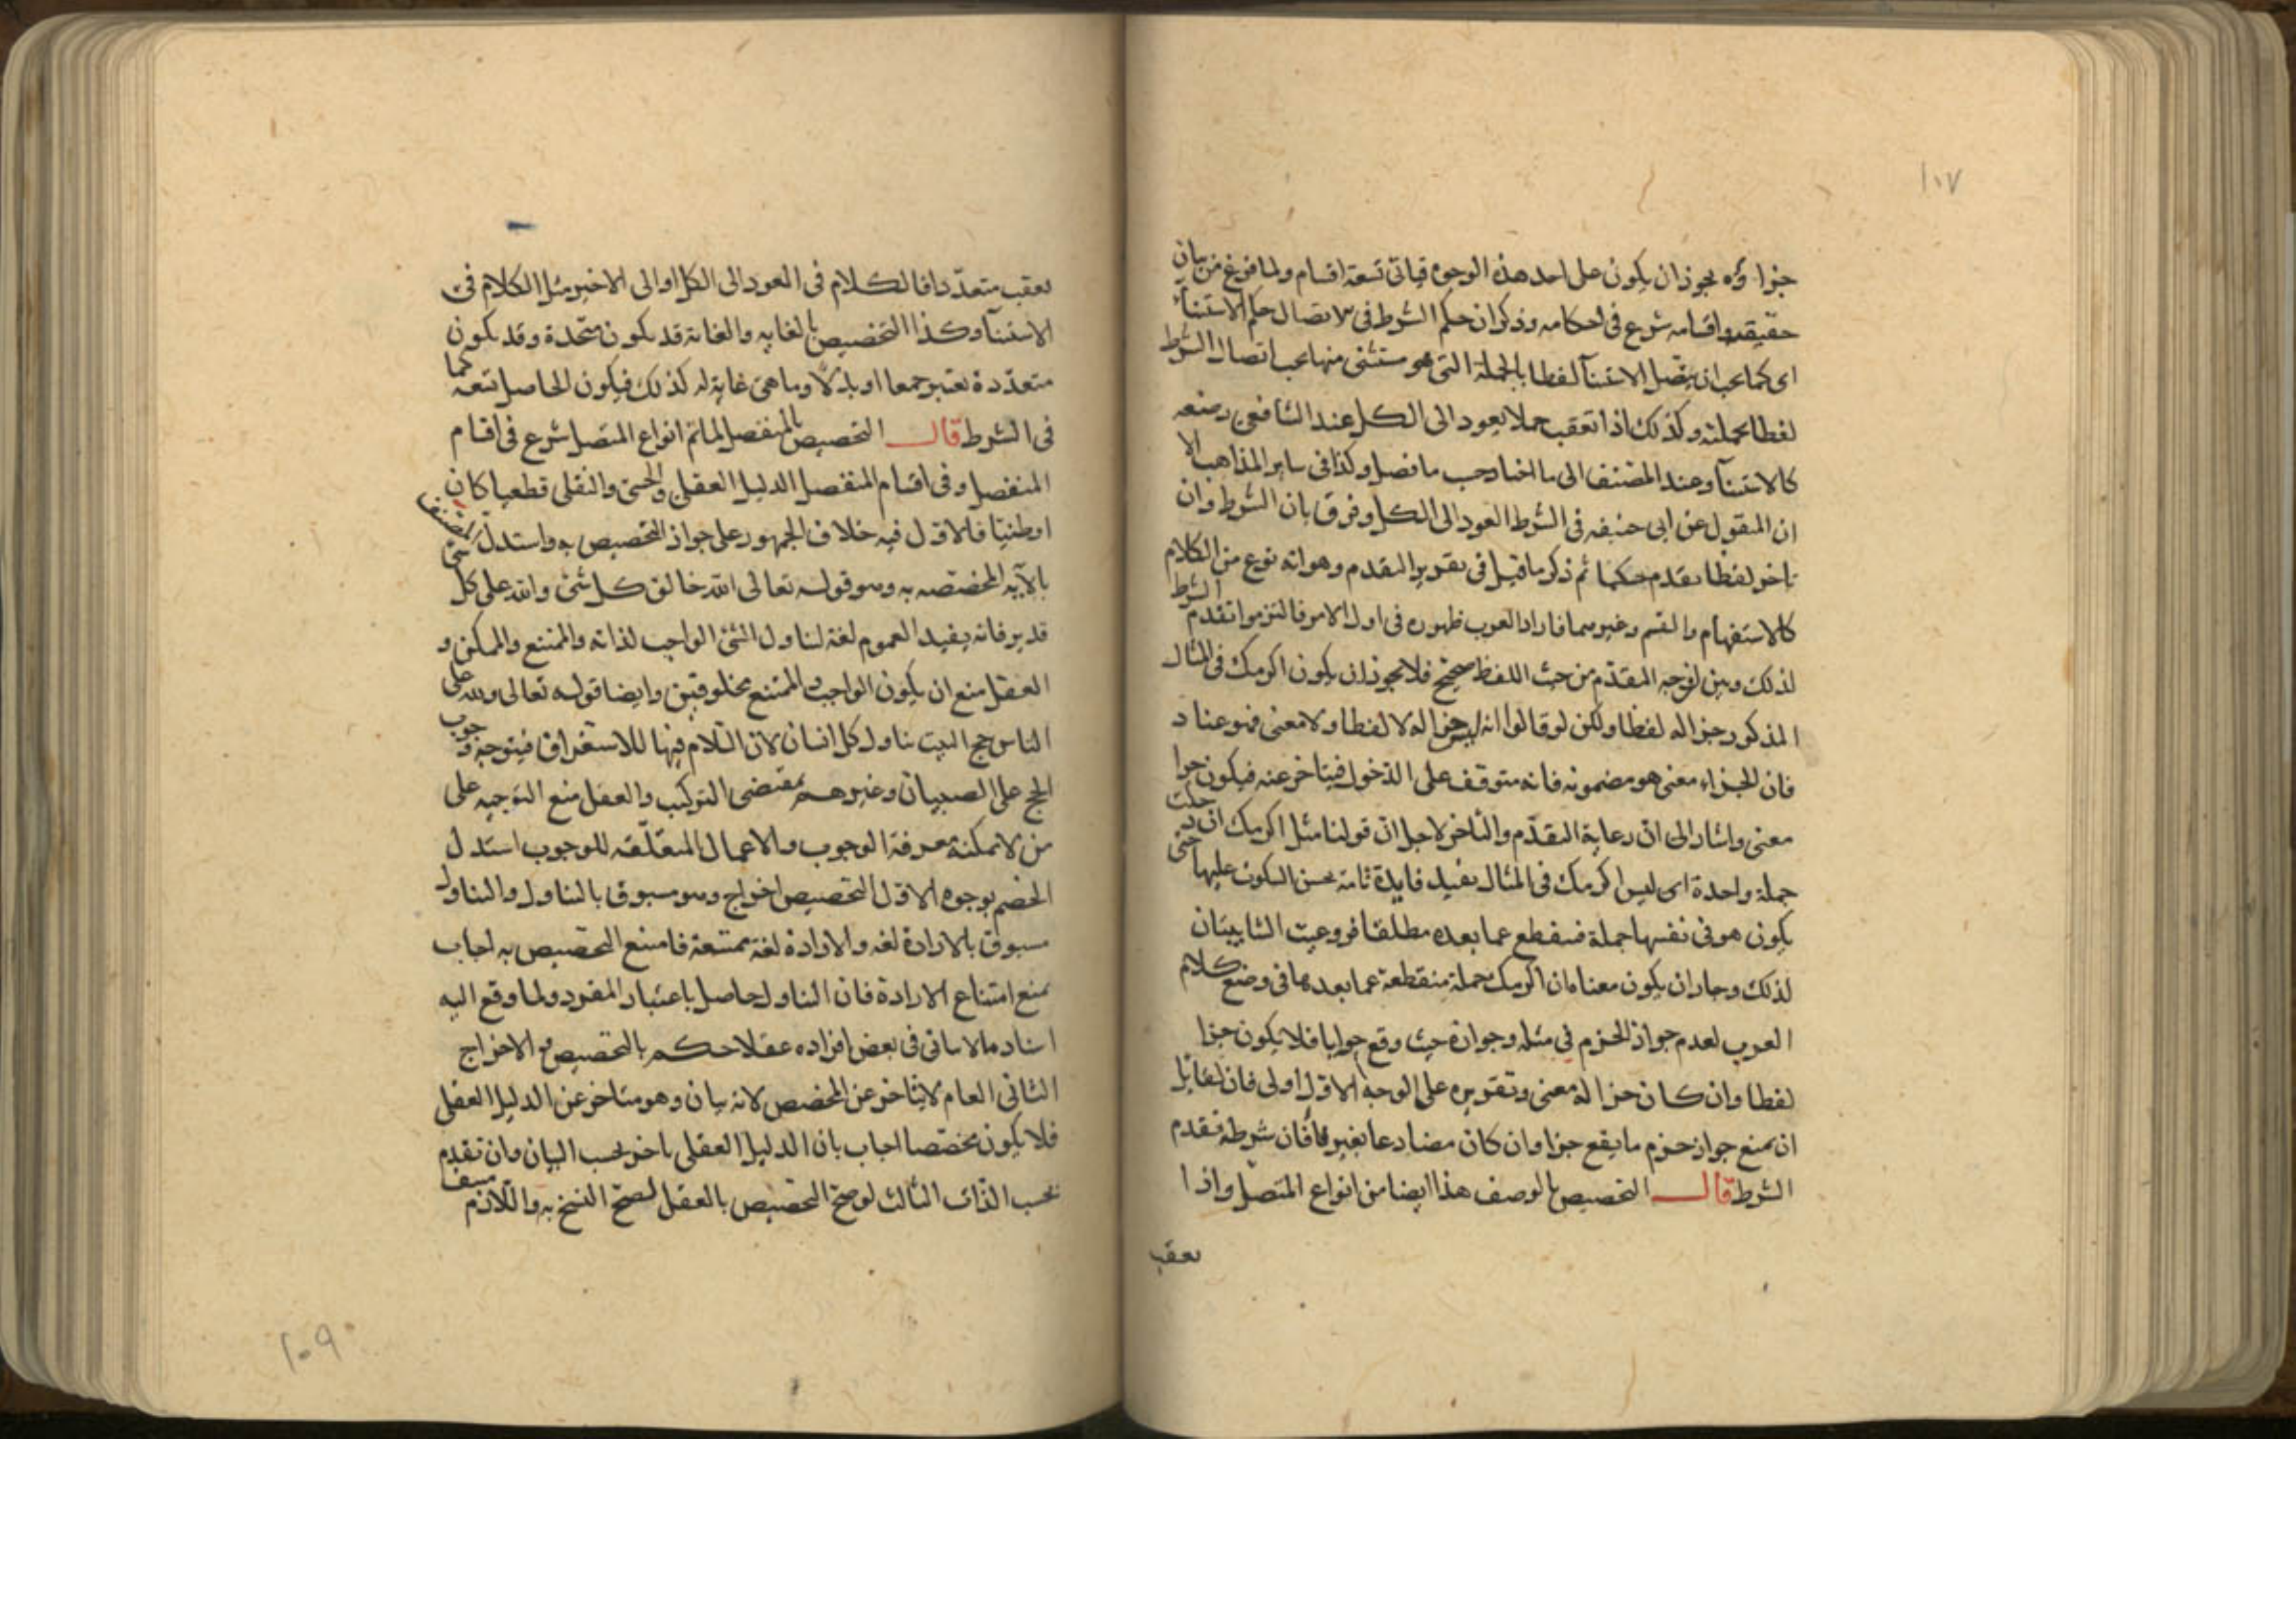 ١٠٧
جزاؤه يجوز ان يكون على احد هذه الوجوه فياتى تسعة اقسام ولما فرغ من بيان
حقيقته واقسامه شرع فى احكامه وذكر ان حكم الشرط فى الاتصال حكم الاستثناء
اى كما يجب ان يتصل الاستثنآ لفظا بالجملة التى هو مستثنى منها يجب اتصال الشرط
لفظا بجملته وكذلك اذا تعقب جملا يعود الى الكل عند الشافعى رضعه
كالاستثنآ وعند المصنف الى ما اختار حسب ما فصل وكذا فى ساير المذاهب الا
ان المنقول عن ابى حنيفه فى الشرط العود الى الكل وفرق بان الشرط وان
تاخر لفظا تقدم حكما ثم ذكر ما قيل فى تقرير التقدم وهو انه نوع من الكلام
كالاستفهام والقسم وغيرهما فاراد العرب ظهوره فى اول الامر فالتزموا تقدم الشرط
لذلك وبين لوجه المقدم من حيث اللفظ صحيح فلا يجوز ان يكون اكرمك فى المثال
المذكور جزا له لفظا ولكن لو قالوا انه ليس جزا له لا لفظا ولا معنى فهو عناد
فان الجزاء معنى هو مضمونه فانه متوقف على الدخول فيتاخر عنه فيكون جزا
معنى واشار الى ان رعاية التقدم والتاخر لاجل ان قولنا مثل اكرمك ان دخلت
جملة واحدة اى ليس اكرمك فى المثال يفيد فايدة تامة يحسن السكوت عليها حتى
يكون هو فى نفسها جملة فينقطع عما بعده مطلقا فروعيت الشايبتان
لذلك وجاز ان يكون معناه ان اكرمك جملة منقطعة عما بعدها فى وضع كلام
العرب لعدم جواز الجزم فى مثله وجوازه حيث وقع جوابا فلا يكون جزا
لفظا وان كان جزا له معنى وتقريره على الوجه الاول اولى فان لقايل
ان يمنع جواز جزم ما يقع جزا وان كان مضارعا بغير فا فان شرطه تقدم
الشرط قال التخصيص بالوصف هذا ايضا من انواع المتصل واذا
تعقب
تعقب متعددا فالكلام فى العود الى الكل او الى الاخير مثل الكلام فى
الاستثنآ وكذا التخصيص بالغايه والغاية قد يكون متحدة وقد يكون
متعددة تعتبر جمعا او بدلا وما هى غاية له كذلك فيكون الحاصل تسعة كما
فى الشرط قال التخصيص بالمنفصل لما تم انواع المتصل شرع فى اقسام
المنفصل وفى اقسام المنفصل الدليل العقلى والحسى والنقلى قطعيا كان
او ظنيا فالاول فيه خلاف الجمهور على جواز التخصيص به واستدل المصنف
بالآيه المخصصه به وهو قوله تعالى الله خالق كل شئ والله على كل شئ
قدير فانه يفيد العموم لغة لتناول الشئ الواجب لذاته والممتنع والممكن و
العقل منع ان يكون الواجب والممتنع مخلوقين وايضا قوله تعالى ولله على
الناس حج البيت يتناول كل انسان لان اللام فيها للاستغراق فيتوجه وجوب
الحج على الصبيان وغيرهم بمقتضى التركيب والعقل منع التوجيه على
من لا يمكنه معرفة الوجوب والاعمال المتعلقه للوجوب استدل
الخصم بوجوه الاول التخصيص اخراج وهو مسبوق بالتناول والتناول
مسبوق بالارادة لغه والارادة لغة ممتنعة فامتنع التخصيص به اجاب
بمنع امتناع الارادة فان التناول حاصل باعتبار المفرد ولما وقع اليه
اسناد ما لا ياتى فى بعض افراده عقلا حكم بالتخصيص والاخراج
الثانى العام لا يتاخر عن المخصص لانه بيان وهو متاخر عن الدليل العقلى
فلا يكون مخصصا اجاب بان الدليل العقلى تاخر بحسب البيان وان تقدم
بحسب الذات الثالث لو صح التخصيص بالعقل لصح النسخ به واللازم منتف
١٠٩